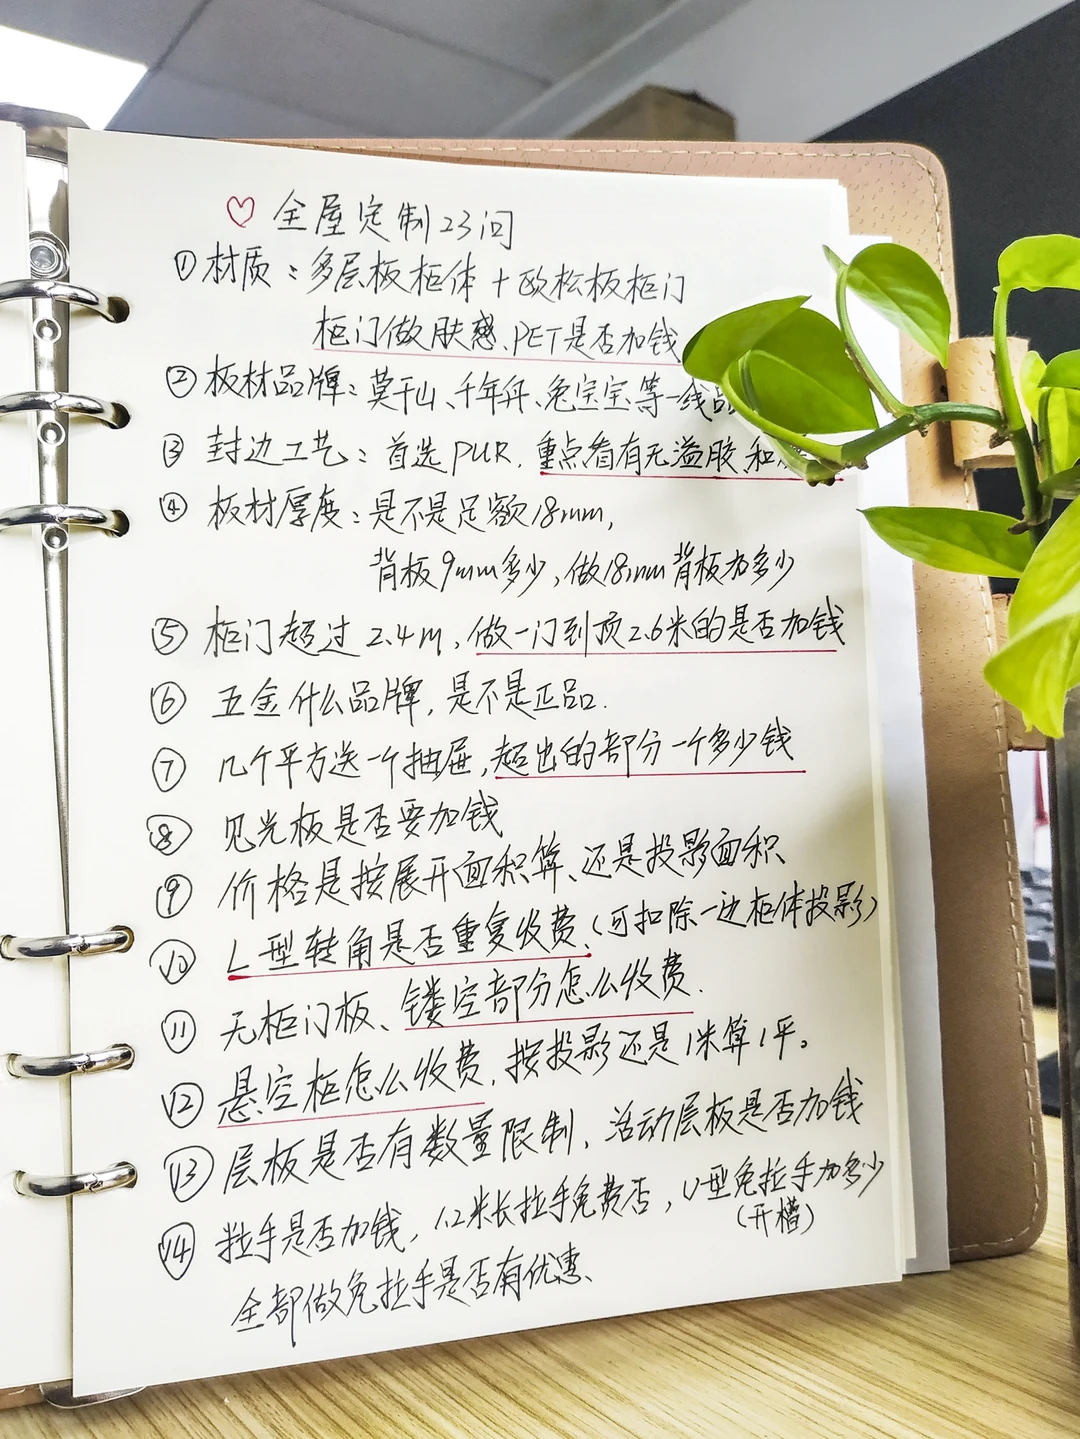 ♡ 全屋定制23问
① 材质：多层板柜体+欧松板柜门
柜门做肤感、PET是否加钱
② 板材品牌：莫干山、千年舟、兔宝宝等一线品
③ 封边工艺：首选PUR，重点看有无溢胶和
④ 板材厚度：是不是足额18mm，
背板9mm多少，做18mm背板加多少
⑤ 柜门超过2.4m，做一门到顶2.6米的是否加钱
⑥ 五金什么品牌，是不是正品.
⑦ 几个平方送一个抽屉，超出的部分一个多少钱
⑧ 见光板是否要加钱
⑨ 价格是按展开面积算、还是投影面积、
⑩ L型转角是否重复收费，(可扣除一边柜体投影)
⑪ 无柜门板、镂空部分怎么收费.
⑫ 悬空柜怎么收费，按投影还是1米算1平。
⑬ 层板是否有数量限制、活动层板是否加钱
⑭ 拉手是否加钱，1.2米长拉手免费否，U型免拉手加多少
(开槽)
全部做免拉手是否有优惠、